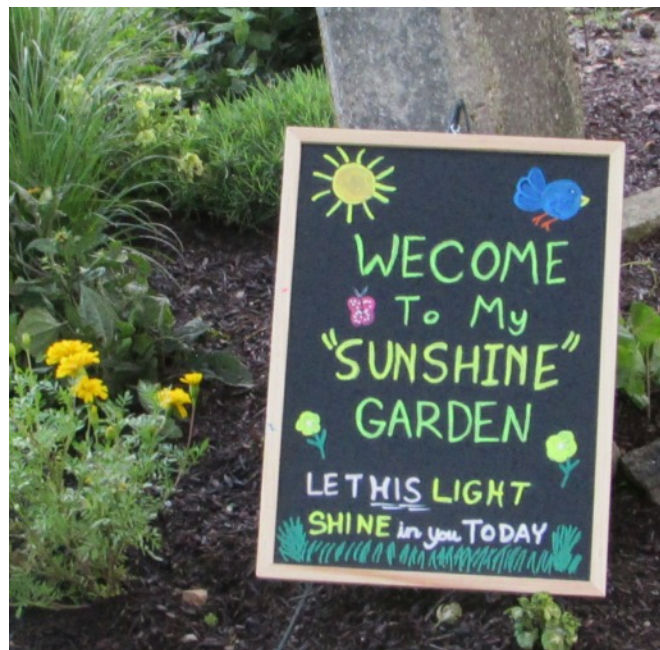 WECOME
To My
"SUNSHINE"
GARDEN
LET HIS LIGHT
SHINE in you TODAY